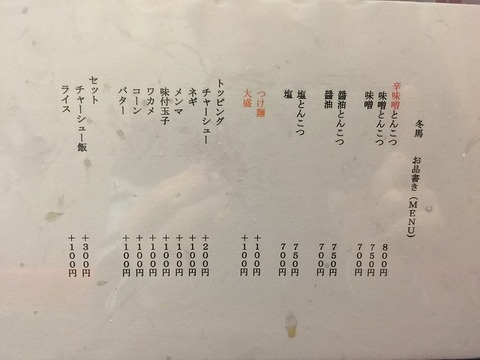 冬馬 お品書き（MENU）
辛味噌とんこつ 800円
味噌とんこつ 750円
味噌 700円
醤油とんこつ 750円
醤油 700円
塩とんこつ 750円
塩 700円
つけ麺 +100円
大盛 +100円
トッピング
チャーシュー +200円
ネギ +100円
メンマ +100円
味付玉子 +100円
ワカメ +100円
コーン +100円
バター +100円
セット
チャーシュー飯 +300円
ライス +100円